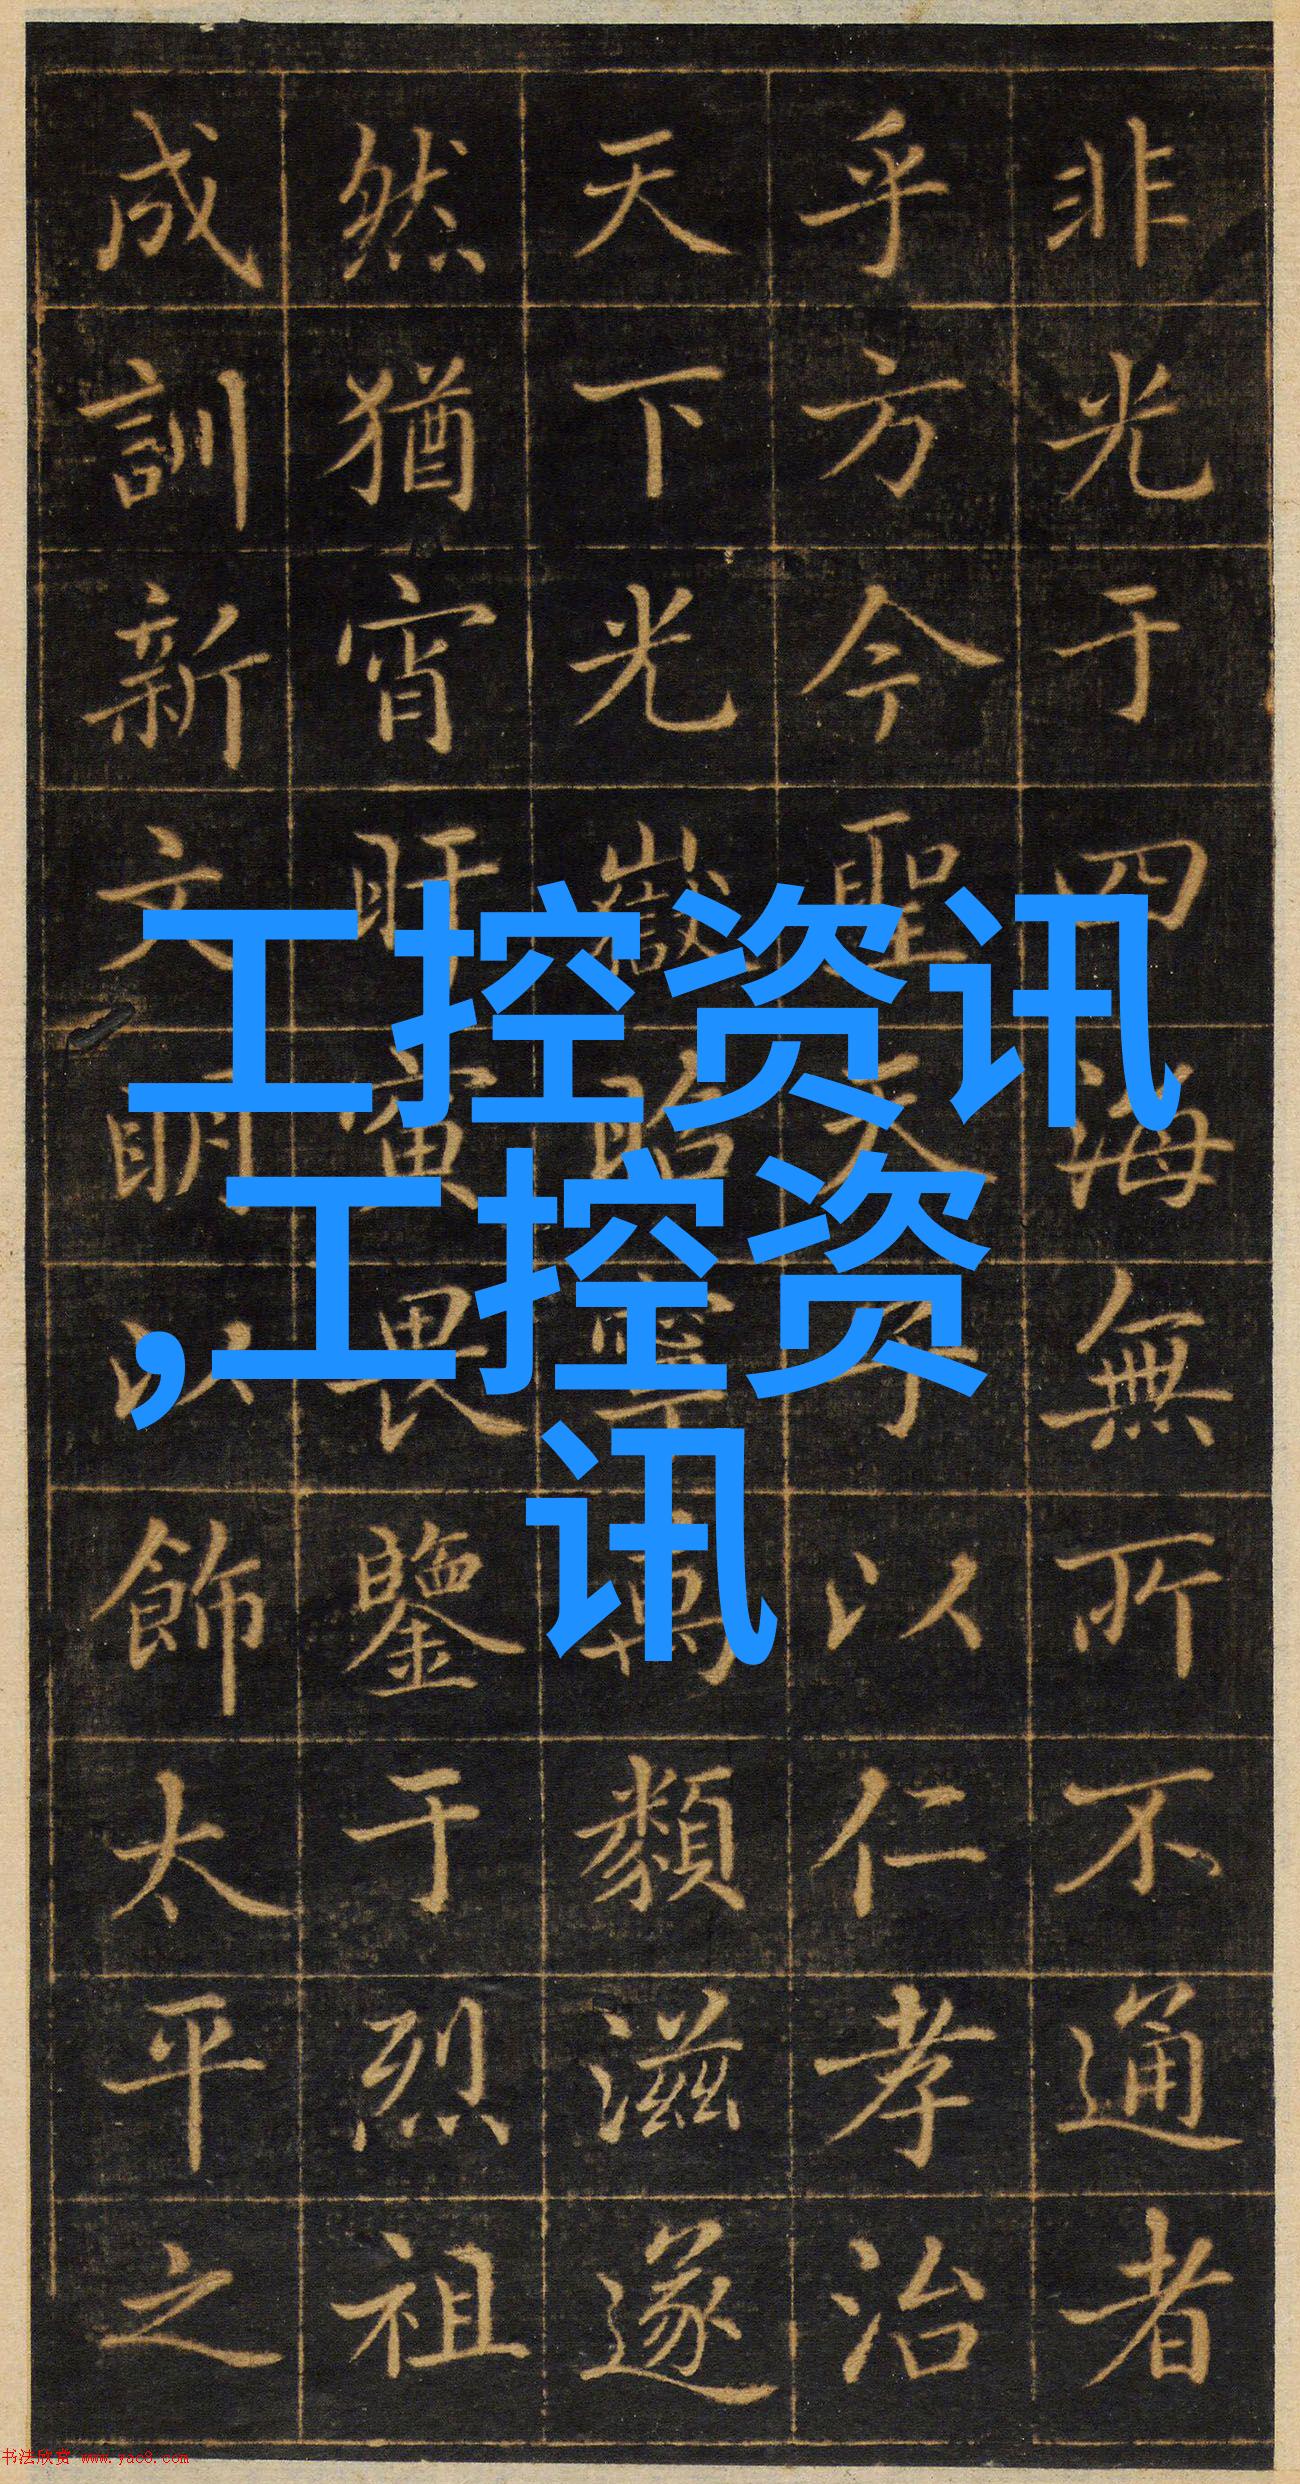 非光于四海無所不通者
乎方今聖天子以仁孝治
天下光嶽萬類滋遂
然猶宵旰寅畏鑒于烈祖
成訓新文明以飾太平之
工控资讯
,工控资
讯
书法欣赏 www.yac8.com